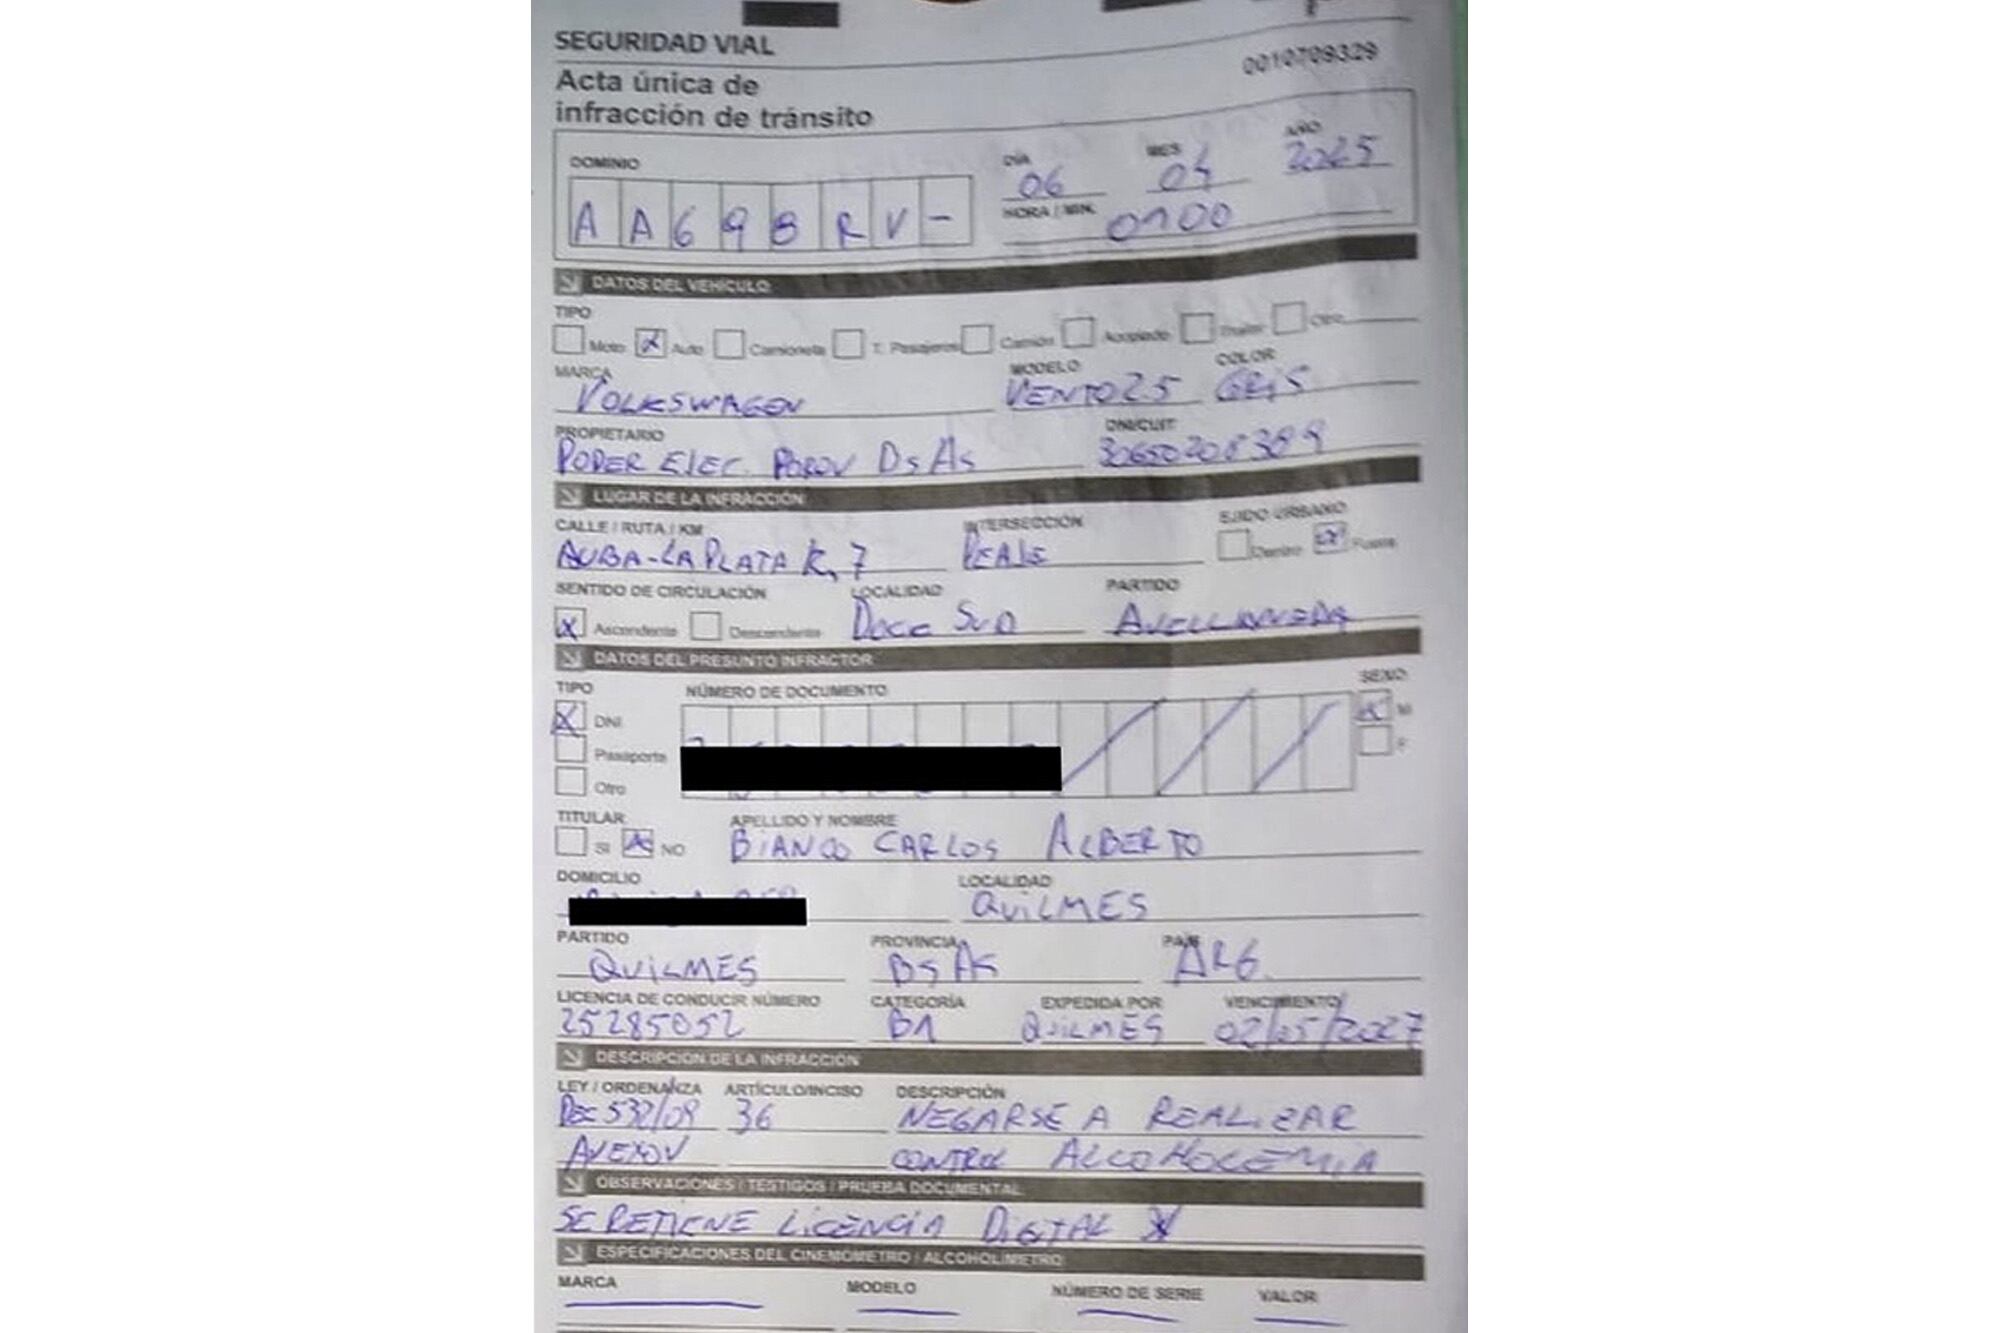 SEGURIDAD VIAL
0010709329
Acta única de
infracción de tránsito
DOMINIO DÍA MES AÑO
06 04 2025
HORA / MIN. 0100
A A 6 9 8 R V -
DATOS DEL VEHÍCULO
TIPO
Moto X Auto Camioneta T. Pasajeros Camión Acoplado Trailer Otro
MARCA MODELO COLOR
VOLKSWAGEN VENTO 2.5 GRIS
PROPIETARIO DNI/CUIT
PODER EJEC. PBS AS
LUGAR DE LA INFRACCIÓN
CALLE / RUTA / KM INTERSECCIÓN EJIDO URBANO
AUBA-LA PLATA K, 7 PEAJE Dentro X Fuera
SENTIDO DE CIRCULACIÓN LOCALIDAD PARTIDO
X Ascendente Descendente DOCK SUD AVELLANEDA
DATOS DEL PRESUNTO INFRACTOR
TIPO NÚMERO DE DOCUMENTO SEXO
X DNI X M
Pasaporte F
Otro
TITULAR APELLIDO Y NOMBRE
SI X NO BIANCO CARLOS ALBERTO
DOMICILIO LOCALIDAD
QUILMES
PARTIDO PROVINCIA PAÍS
QUILMES BS AS ARG.
LICENCIA DE CONDUCIR NÚMERO CATEGORÍA EXPEDIDA POR VENCIMIENTO
25285052 B1 QUILMES 02/05/2027
DESCRIPCIÓN DE LA INFRACCIÓN
LEY / ORDENANZA ARTÍCULO/INCISO DESCRIPCIÓN
DEC 532/09 36 NEGARSE A REALIZAR
CONTROL ALCOHOLEMIA
OBSERVACIONES / TESTIGOS / PRUEBA DOCUMENTAL
SE RETIENE LICENCIA DIGITAL
ESPECIFICACIONES DEL CINEMÓMETRO / ALCOHOLÍMETRO
MARCA MODELO NÚMERO DE SERIE VALOR